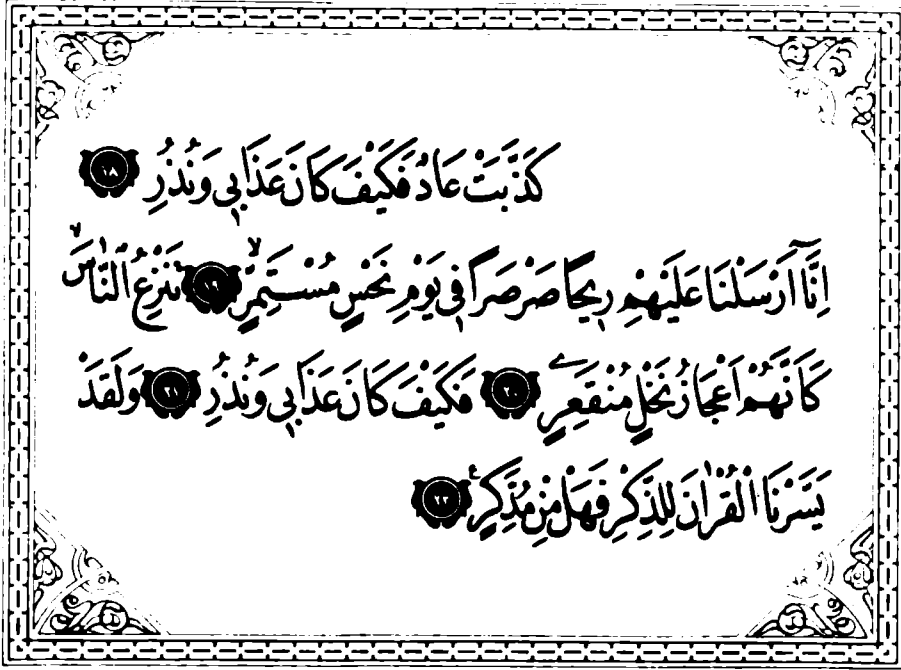 كَذَّبَتْ عَادٌ فَكَيْفَ كَانَ عَذَابِي وَنُذُرِ ١٨
اِنَّٓا اَرْسَلْنَا عَلَيْهِمْ رِيحًا صَرْصَرًا فِي يَوْمِ نَحْسٍ مُسْتَمِرٍّۙ ١٩ تَنْزِعُ النَّاسَۙ
كَاَنَّهُمْ اَعْجَازُ نَخْلٍ مُنْقَعِرٍ ٢٠ فَكَيْفَ كَانَ عَذَابِي وَنُذُرِ ٢١ وَلَقَدْ
يَسَّرْنَا الْقُرْاٰنَ لِلذِّكْرِ فَهَلْ مِنْ مُدَّكِرٍ ٢٢